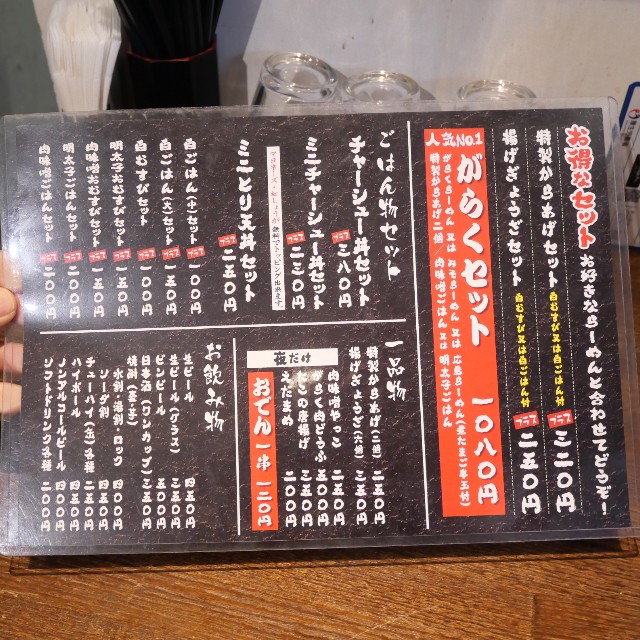 お得なセット お好きならーめんと合わせてどうぞ!
特製からあげセット 白むすび又は白ごはん付 プラス 三二〇円
揚げぎょうざセット 白むすび又は白ごはん付 プラス 二五〇円
人気No.1 がらくセット 一〇八〇円
がらくらーめん 又は みそらーめん 又は 広島らーめん(煮たまご半玉付)
特製からあげ二個/肉味噌ごはん 又は 明太子ごはん
ごはん物セット
チャーシュー丼セット プラス 三八〇円
ミニチャーシュー丼セット プラス 二三〇円
マヨネーズ・私しょうが 無料でトッピング出来ます
ミニとり天丼セット プラス 二五〇円
白ごはん(中)セット プラス 一〇〇円
白ごはん(大)セット プラス 一五〇円
白むすびセット プラス 一〇〇円
明太子おむすびセット プラス 一五〇円
肉味噌おむすびセット プラス 一五〇円
明太子ごはんセット プラス 二〇〇円
肉味噌ごはんセット プラス 二〇〇円
一品物
特製からあげ(二個) 二五〇円
揚げぎょうざ(六個) 二五〇円
肉味噌やっこ 二五〇円
がらく肉どうふ 三五〇円
の唐揚げ 三五〇円
えだまめ 二〇〇円
夜だけ
おでん 一串 一二〇円
お飲み物
生ビール 四五〇円
生ビール(グラス) 三五〇円
ビンビール 五五〇円
日本酒(ワンカップ) 三五〇円
焼酎(麦・芋)
水割・湯割・ロック 四〇〇円
ソーダ割 四五〇円
チューハイ(缶)各種
ハイボール 四五〇円
ノンアルコールビール 四五〇円
ソフトドリンク各種 二〇〇円